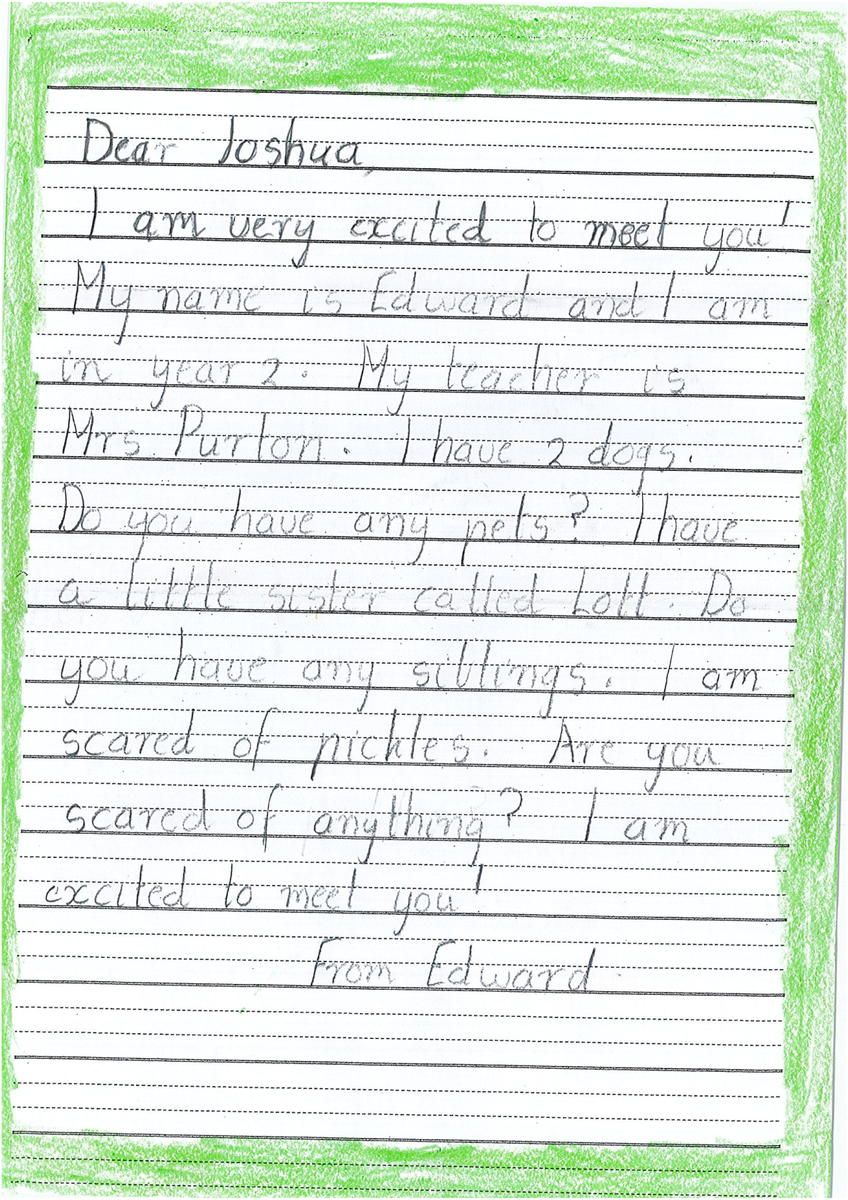 Dear Joshua,
I am very excited to meet you!
My name is Edward and I am
in year 2. My teacher is
Mrs Purton. I have 2 dogs.
Do you have any pets? I have
a little sister called Lott. Do
you have any siblings. I am
scared of pickles. Are you
scared of anything? I am
excited to meet you!
From Edward